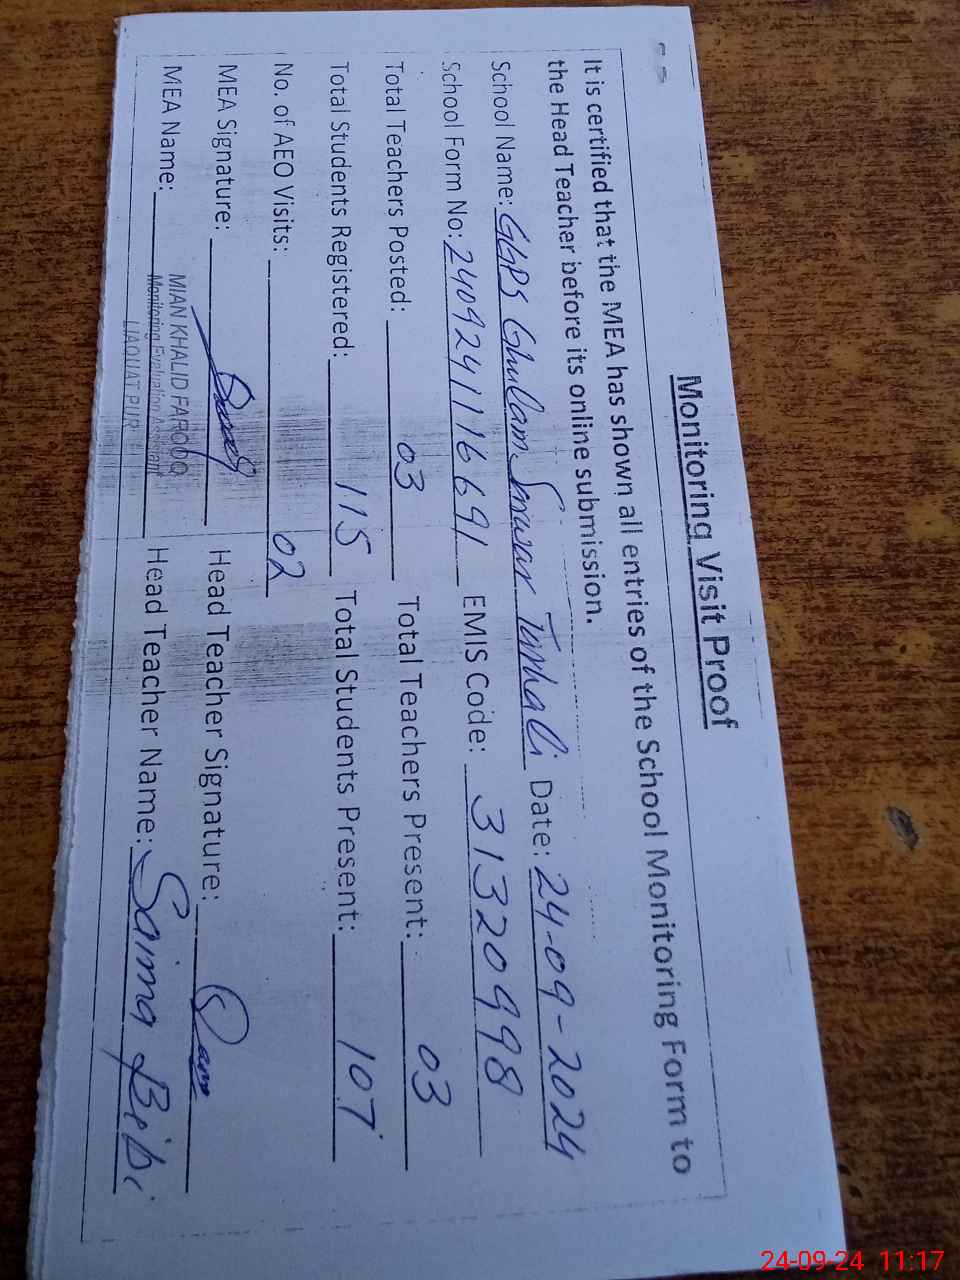 Monitoring Visit Proof
It is certified that the MEA has shown all entries of the School Monitoring Form to
the Head Teacher before its online submission.
School Name: GGPS Ghulam Sarwar Date: 24-09-2024
School Form No: 2409241116691 EMIS Code: 31320998
Total Teachers Posted: 03 Total Teachers Present: 03
Total Students Registered: 115 Total Students Present: 107
No. of AEO Visits: 02
MEA Signature: Head Teacher Signature:
MIAN KHALID FAROOQ
MEA Name: Head Teacher Name: Saima Bibi
Monitoring Evaluation Assistant
LIAQUAT PUR
24-09-24 11:17